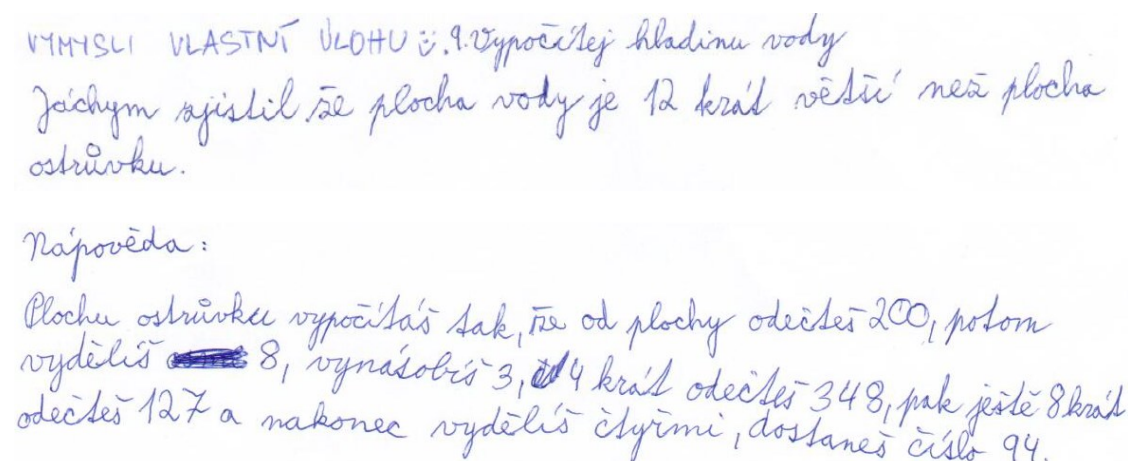 VYMYSLI VLASTNÍ ÚLOHU ಃ. 9. Vypočítej hladinu vody
Jáchym zjistil že plocha vody je 12 krát větší než plocha
ostrůvku.
Nápověda:
Plochu ostrůvku vypočítáš tak, že od plochy odečteš 200, potom
vydělíš 8, vynásobíš 3, 4 krát odečteš 348, pak ještě 8 krát
odečteš 127 a nakonec vydělíš čtyřmi, dostaneš číslo 94.